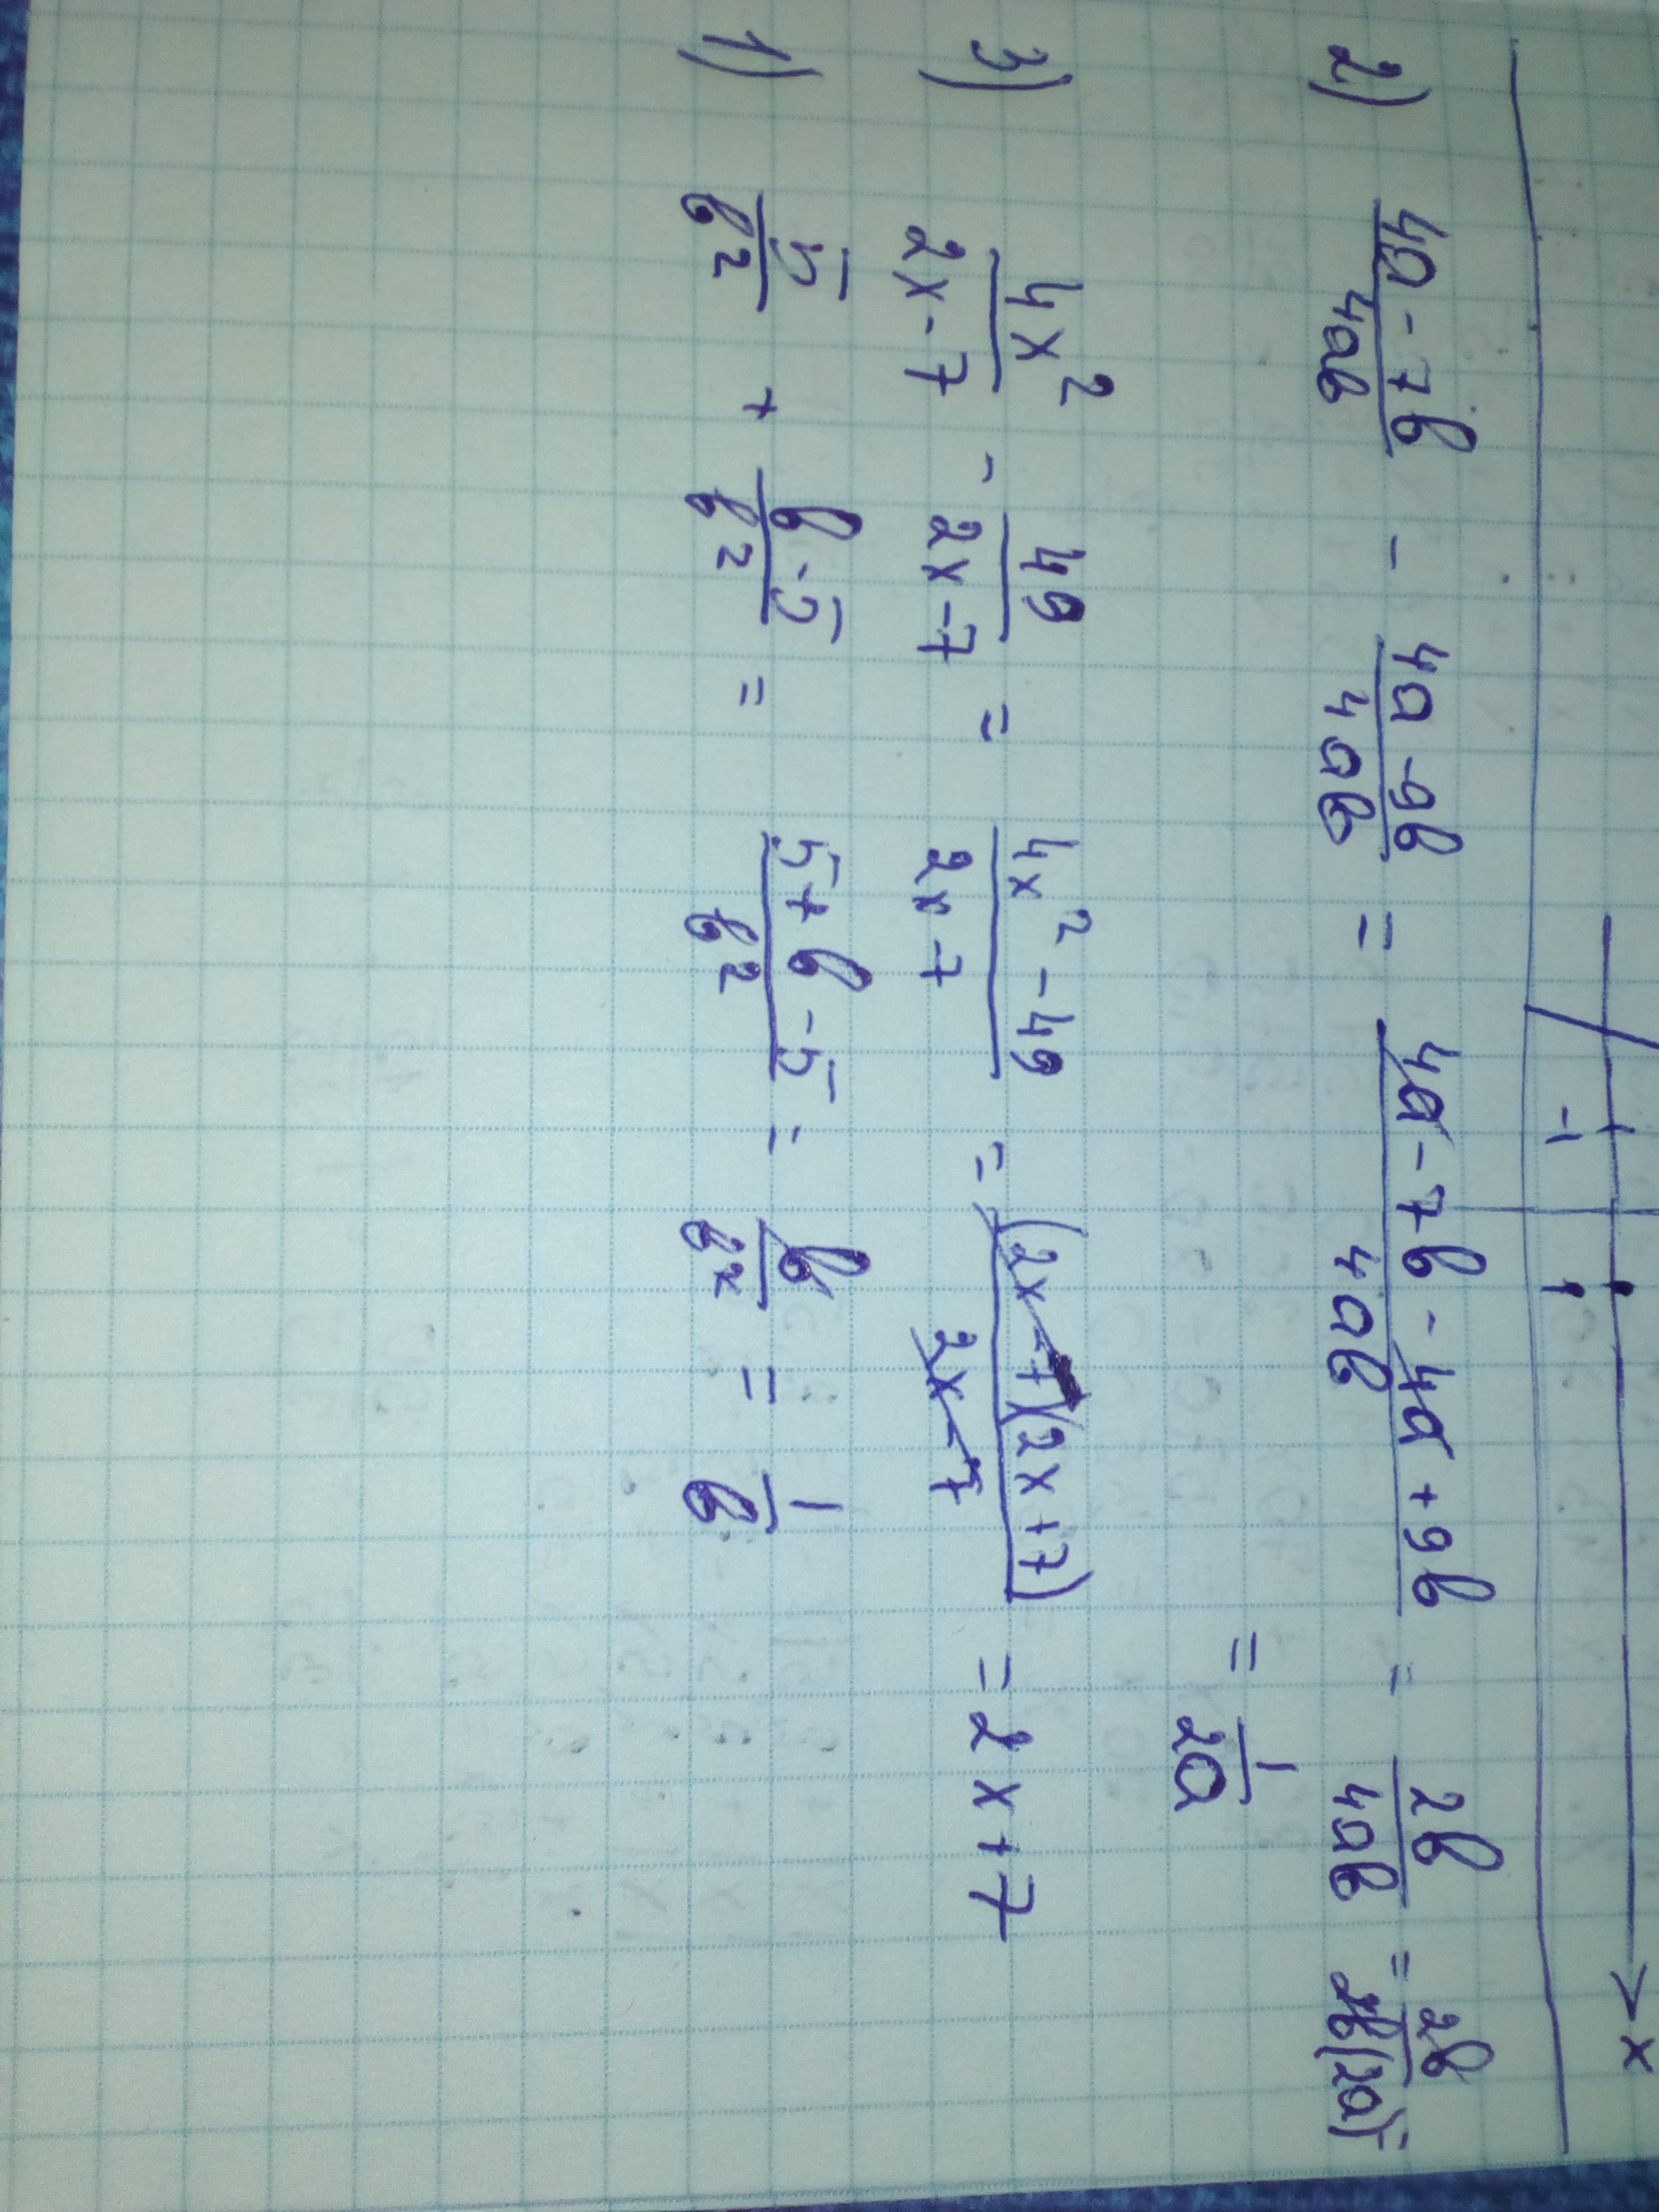 x
-1 1
2) (4a - 7b)/(4ab) - (4a - 9b)/(4ab) = (4a - 7b - 4a + 9b)/(4ab) = (2b)/(4ab) = (2b)/(2b(2a)) =
= 1/(2a)
3) (4x²)/(2x - 7) - 49/(2x - 7) = (4x² - 49)/(2x - 7) = ((2x - 7)(2x + 7))/(2x - 7) = 2x + 7
1) 5/b² + (b - 5)/b² = (5 + b - 5)/b² = b/b² = 1/b